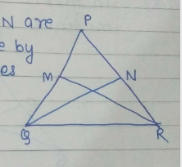 N are
e by
es
P
M N
Q R